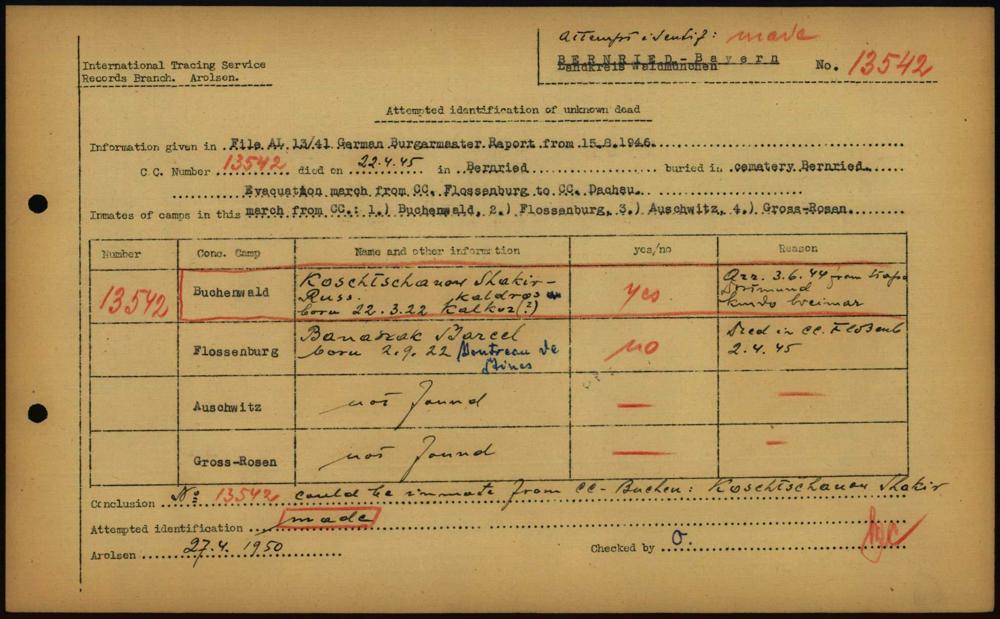 Attempt identif: made
International Tracing Service
Records Branch. Arolsen.
BERNRIED-Bayern
Landkreis Waldmünchen
No. 13542
Attempted identification of unknown dead
Information given in File AL 13/41 German Burgarmaster Report from 15.8.1946.
C.C. Number 13542 died on 22.4.45 in Bernried buried in cematery Bernried.
Evacuation march from CC. Flossenburg to CC. Dachau.
Inmates of camps in this march from CC.: 1.) Buchenwald, 2.) Flossenburg, 3.) Auschwitz, 4.) Gross-Rosen
Number Conc. Camp Name and other information yes/no Reason
13542 Buchenwald Koschtschanow Shakir- yes Arr. 3.6.44 from
Russ. Dortmund
born 22.3.22 Kalkoz(?) kmdo Weimar
Flossenburg Banaszak Marcel no Died in CC. Flossenb
born 2.9.22 Montceau de 2.4.45
Mines
Auschwitz not found —
Gross-Rosen not found —
Conclusion No 13542 could be inmate from CC-Buchen: Koschtschanow Shakir
Attempted identification made
Arolsen 27.4.1950 Checked by O.